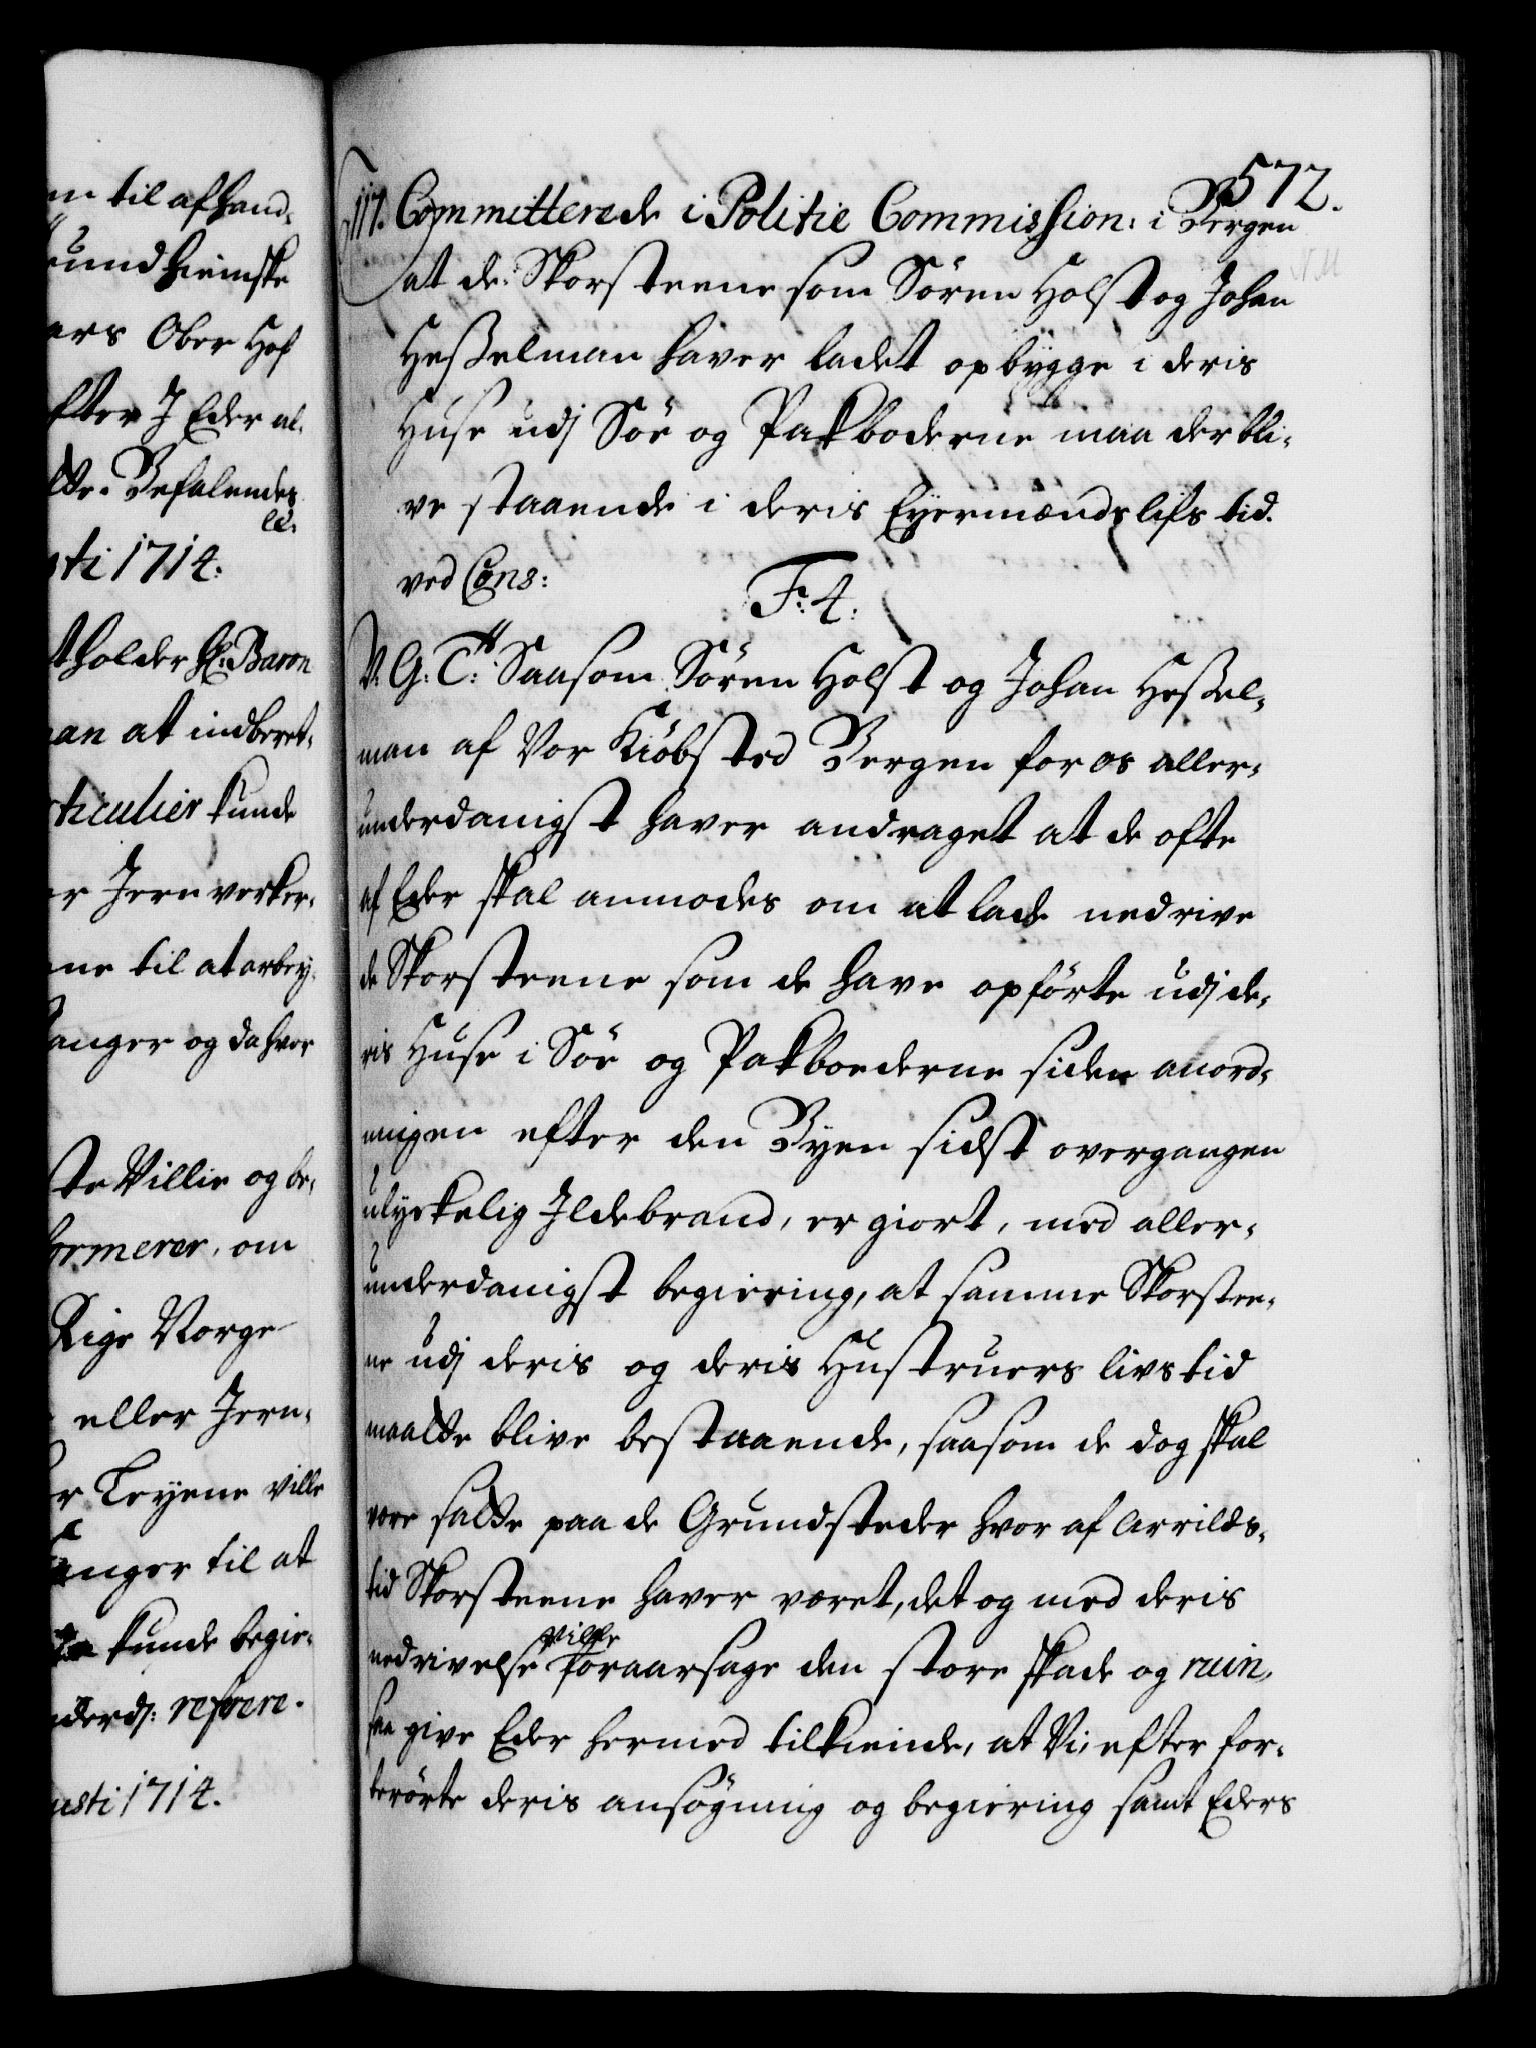 m til afhand-
undhiemske
ers Ober Hof
fter I Eder al-
Befalendes
sti 1714.
tholder Hr: Baron
an at indberet-
rticulier kunde
r Jern verker-
ne til at arbey-
anger og da hvor
ste Villie og be-
formerer, om
Rige Norge
eller Jern-
r Leyene ville
anger til at
kunde begie-
nderd: refrere.
usti 1714.
572.
117. Committerede i Politie Commission: i Bergen
at de: Skorsteene som Sören Holst og Johan
Hesselman haver ladet opbygge i deris
Huse udj Söe og Pakboderne maa der bli-
ve staaende i deris Eyermænds lifs tid.
ved Cons:
F: 4:
V: G: T: Saasom Sören Holst og Johan Hessel-
man af Vor Kiöbsted Bergen for os aller-
underdanigst haver andraget at de ofte
af Eder skal anmodes om at lade nedrive
de Skorsteene som de have opförte udj de-
ris Huse i Söe og Pakboederne siden anord-
ningen efter den Byen sidst overgangen
ulyckelig Ildebrand, er giort, med aller-
underdanigst begiering, at samme Skorstee-
ne udj deris og deris Hustruers livs tid
maatte blive bestaaende, saasom de dog skal
vere satte paa de Grundsteder hvor af Arrilds-
tid Skorsteene haver veret, det og med deris
nedrivelse ville foraarsage den store skade og ruin,
saa give Eder hermed tilkiende, at Vi, efter for-
berörte deris ansögning og begiering samt Eders